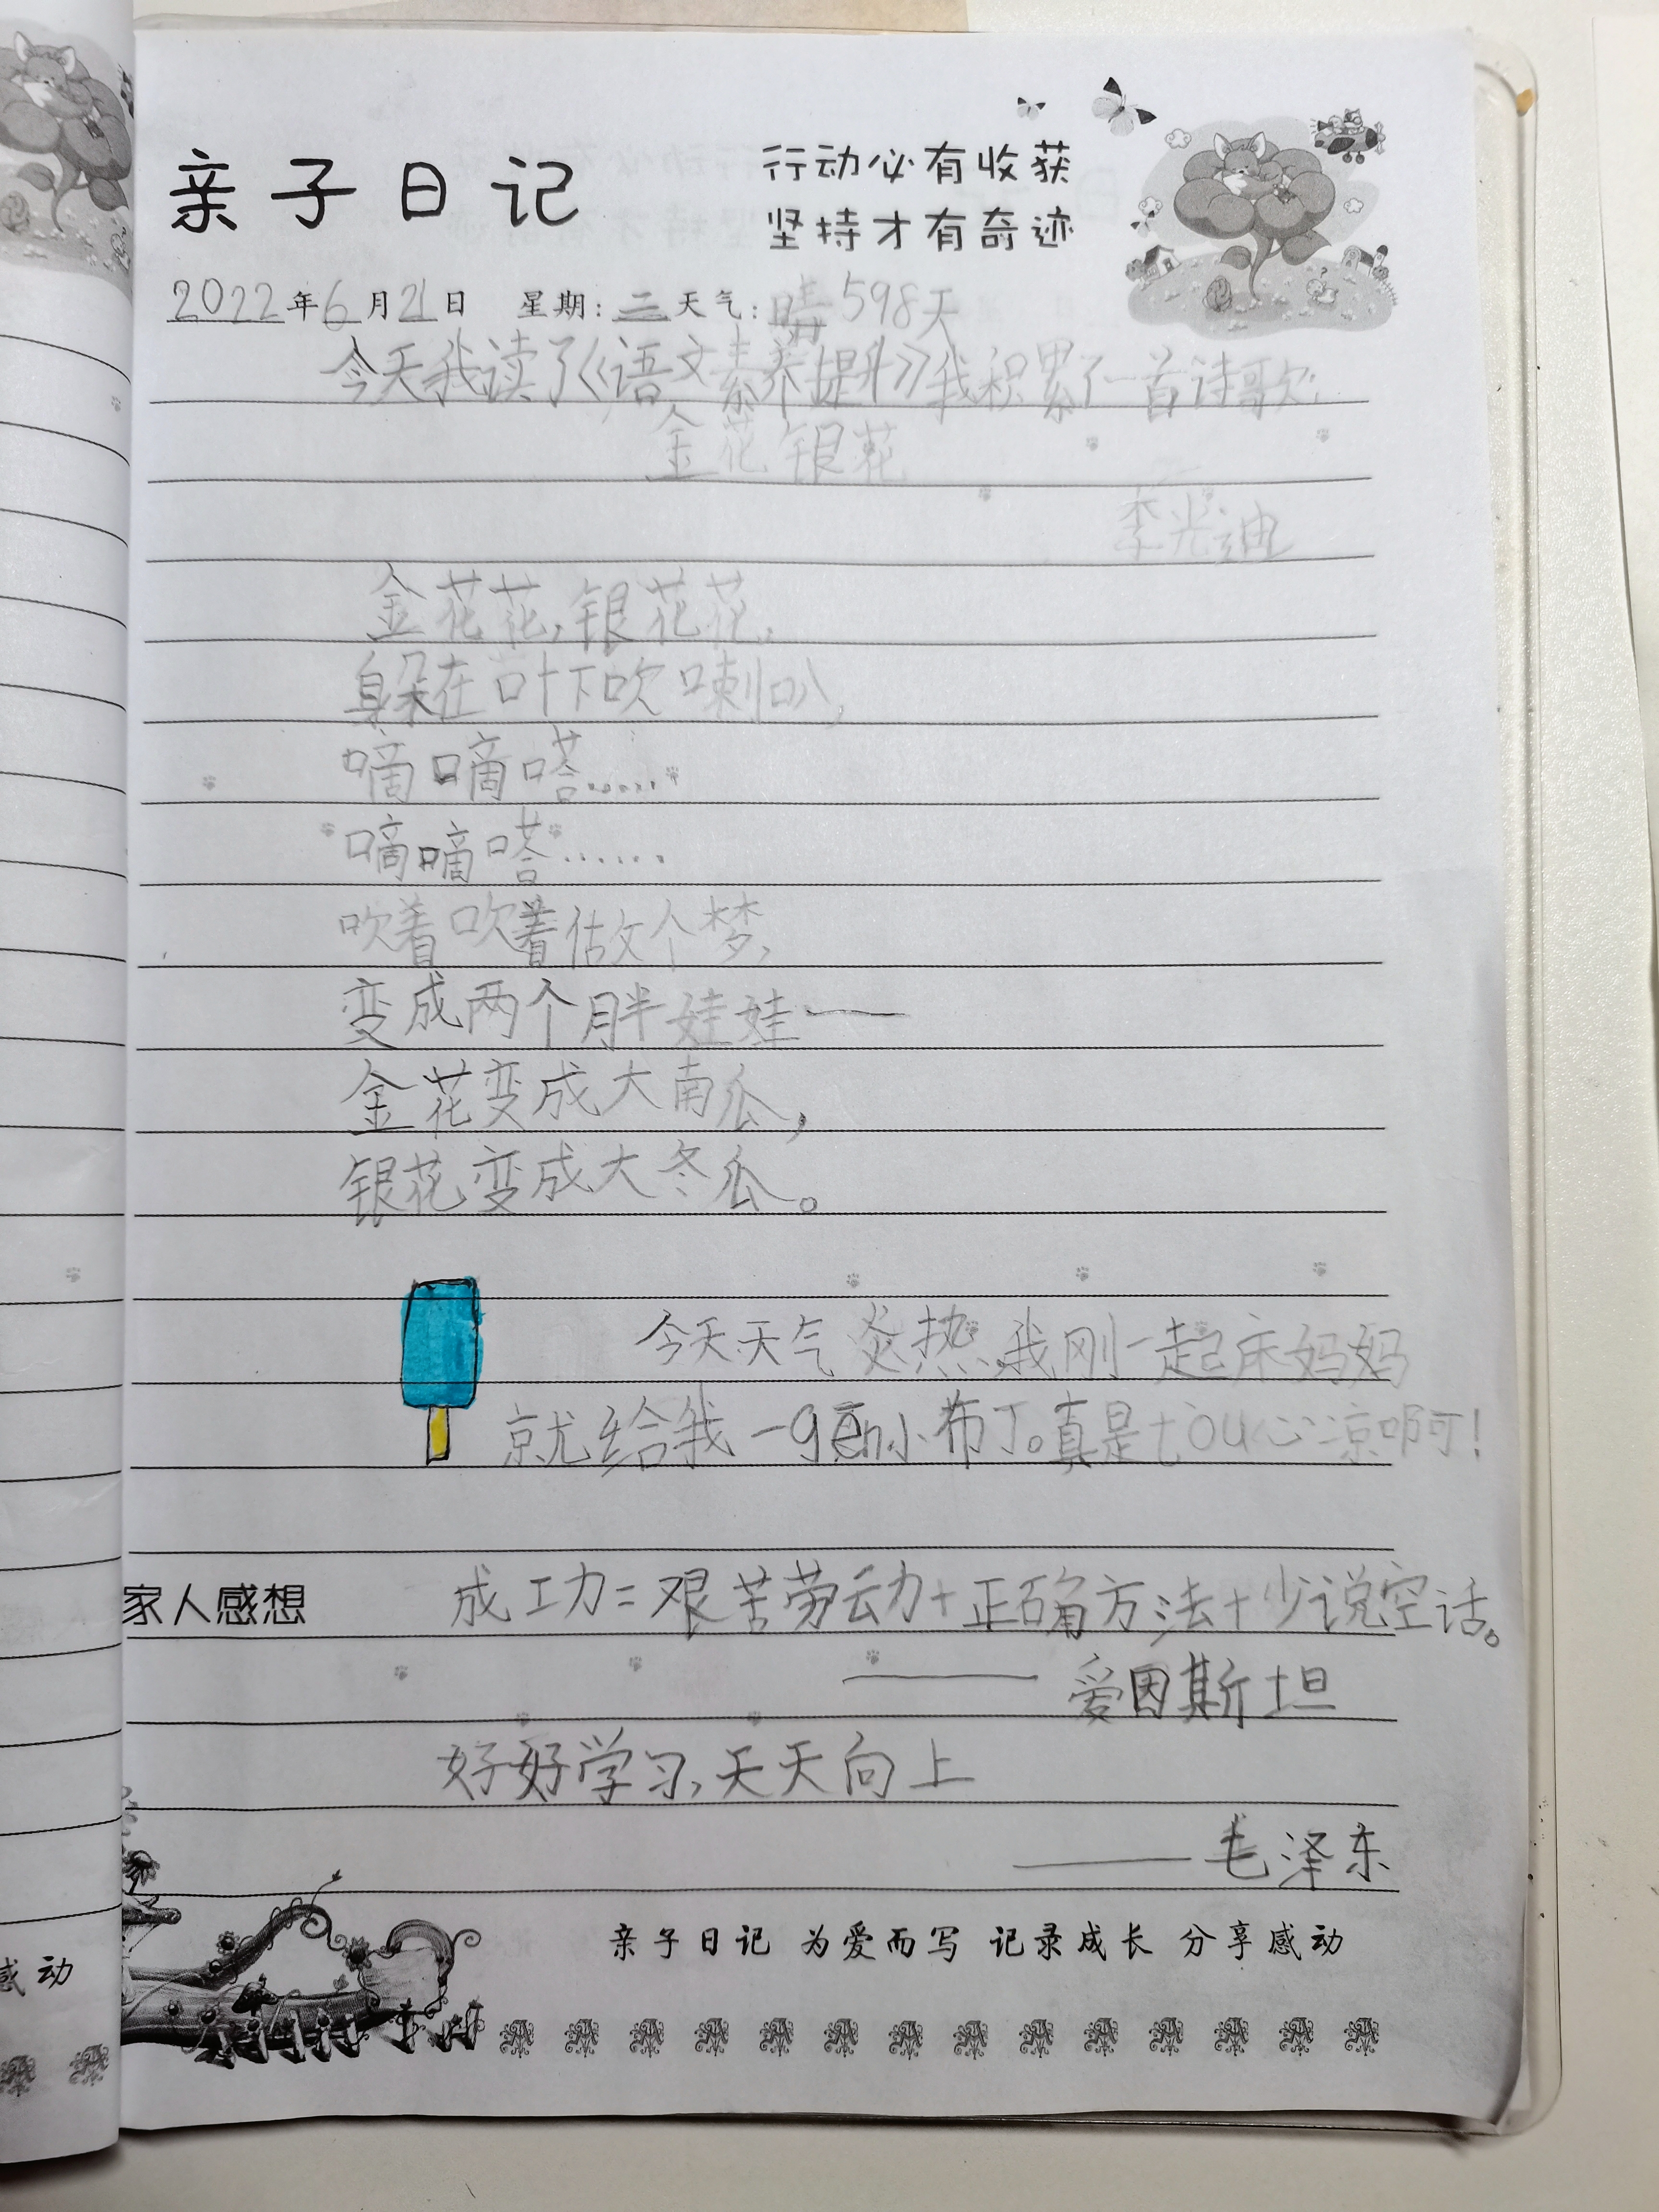 亲子日记
行动必有收获
坚持才有奇迹
2022年6月21日 星期:二天气:晴 598天
今天我读了《语文素养提升》我积累了一首诗歌:
金花银花
李光迪
金花花,银花花,
躲在叶下吹喇叭,
嘀嘀嗒……
嘀嘀嗒……
吹着吹着做个梦,
变成两个胖娃娃——
金花变成大南瓜,
银花变成大冬瓜。
今天天气炎热,我刚一起床妈妈
就给我一gēn小布丁。真是tòu心凉啊!
家人感想 成功=艰苦劳动+正确方法+少说空话。
——爱因斯坦
好好学习,天天向上
——毛泽东
亲子日记 为爱而写 记录成长 分享感动
感动